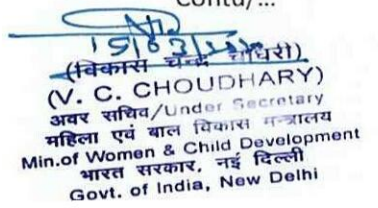 Contd/...
15/03/
(विकास चन्द्र चौधरी)
(V. C. CHOUDHARY)
अवर सचिव/Under Secretary
महिला एवं बाल विकास मन्त्रालय
Min.of Women & Child Development
भारत सरकार, नई दिल्ली
Govt. of India, New Delhi